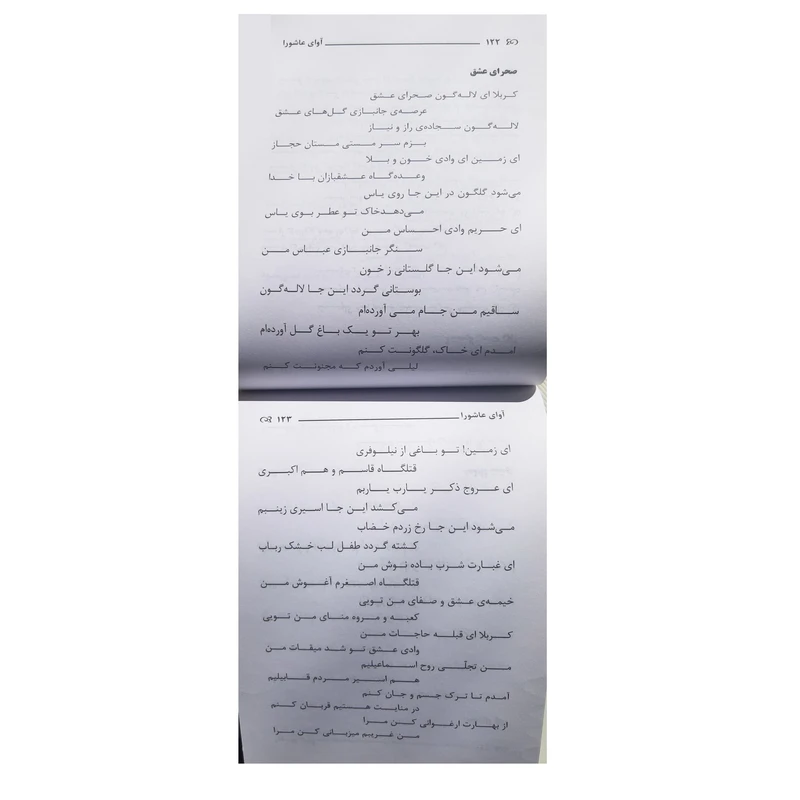 ۱۲۲ آوای عاشورا
صحرای عشق
کربلا ای لاله‌گون صحرای عشق
عرصه‌ی جانبازی گل‌های عشق
لاله‌گون سجاده‌ی راز و نیاز
بزم سر مستی مستان حجاز
ای زمین ای وادی خون و بلا
وعده‌گاه عشقبازان با خدا
می‌شود گلگون در این جا روی یاس
می‌دهدخاک تو عطر بوی یاس
ای حریم وادی احساس من
سنگر جانبازی عباس من
می‌شود این جا گلستانی ز خون
بوستانی گردد این جا لاله‌گون
ساقیم من جام می آورده‌ام
بهر تو یک باغ گل آورده‌ام
آمدم ای خاک، گلگونت کنم
لیلی آوردم که مجنونت کنم
آوای عاشورا ۱۲۳
ای زمین! تو باغی از نیلوفری
قتلگاه قاسم و هم اکبری
ای عروج ذکر یارب یاربم
می‌کشد این جا اسیری زینبم
می‌شود این جا رخ زردم خضاب
کشته گردد طفل لب خشک رباب
ای غبارت شرب باده نوش من
قتلگاه اصغرم آغوش من
خیمه‌ی عشق و صفای من تویی
کعبه و مروه منای من تویی
کربلا ای قبله حاجات من
وادی عشق تو شد میقات من
من تجلّی روح اسماعیلیم
هم اسیر مردم قابیلیم
آمدم تا ترک جسم و جان کنم
در منایت هستیم قربان کنم
از بهارت ارغوانی کن مرا
من غریبم میزبانی کن مرا